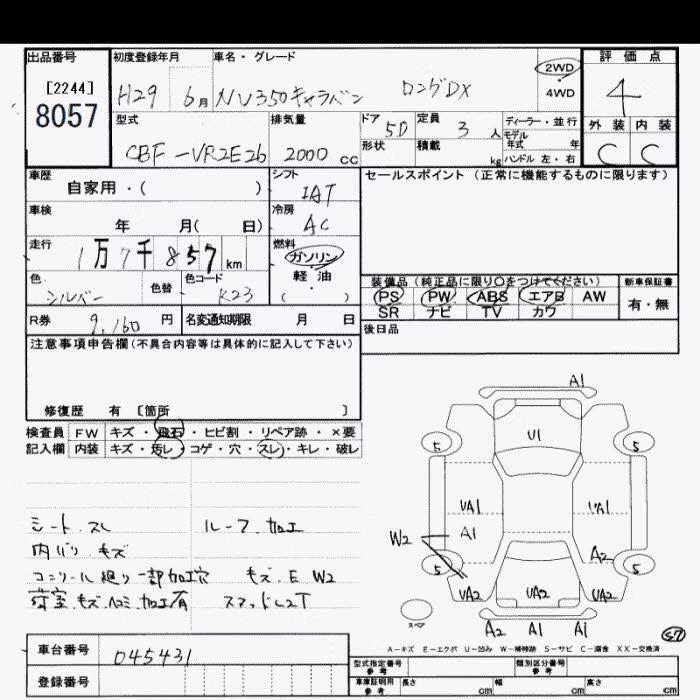 出品番号
[2244]
8057
初度登録年月
H29 6月
車名・グレード
NV350キャラバン ロングDX
2WD
4WD
評価点
4
外装 内装
C C
型式
CBF-VR2E26
排気量
2000 cc
ドア 5D
形状
定員 3 人
積載 kg
ディーラー・並行
モデル年式 年
ハンドル 左・右
車歴
自家用・( )
シフト
IAT
セールスポイント(正常に機能するものに限ります)
車検
年 月( 日)
冷房
AC
走行
1万7千857 km
燃料
ガソリン
軽・油
( )
色
シルバー
色替
色コード
K23
装備品(純正品に限り○をつけてください)
PS PW ABS エアB AW
SR ナビ TV カワ
新車保証書
有・無
R券
9,160 円
名変通知期限 月 日
後日品
注意事項申告欄(不具合内容等は具体的に記入して下さい)
修復歴 有 [箇所 ]
検査員 FW キズ・飛石・ヒビ割・リペア跡・×要
記入欄 内装 キズ・汚レ・コゲ・穴・スレ・キレ・破レ
シート.スレ ルーフ.加工
内バリ.キズ
コンソール廻り一部加工穴 キズ.E W2
荷室.キズ.ヘコミ.加工有
A1
U1
5 5
UA1 UA1
A1
W2
A2
5 5
UA2 UA2 UA2
スペア
A2 A1 A1
A-キズ E-エクボ U-凹み W-補補跡 S-サビ C-腐食 XX-交換済
車台番号 045431
登録番号
型式指定番号 参考
類別区分番号 参考
車庫証明用 参考
長さ cm 幅 cm 高さ cm